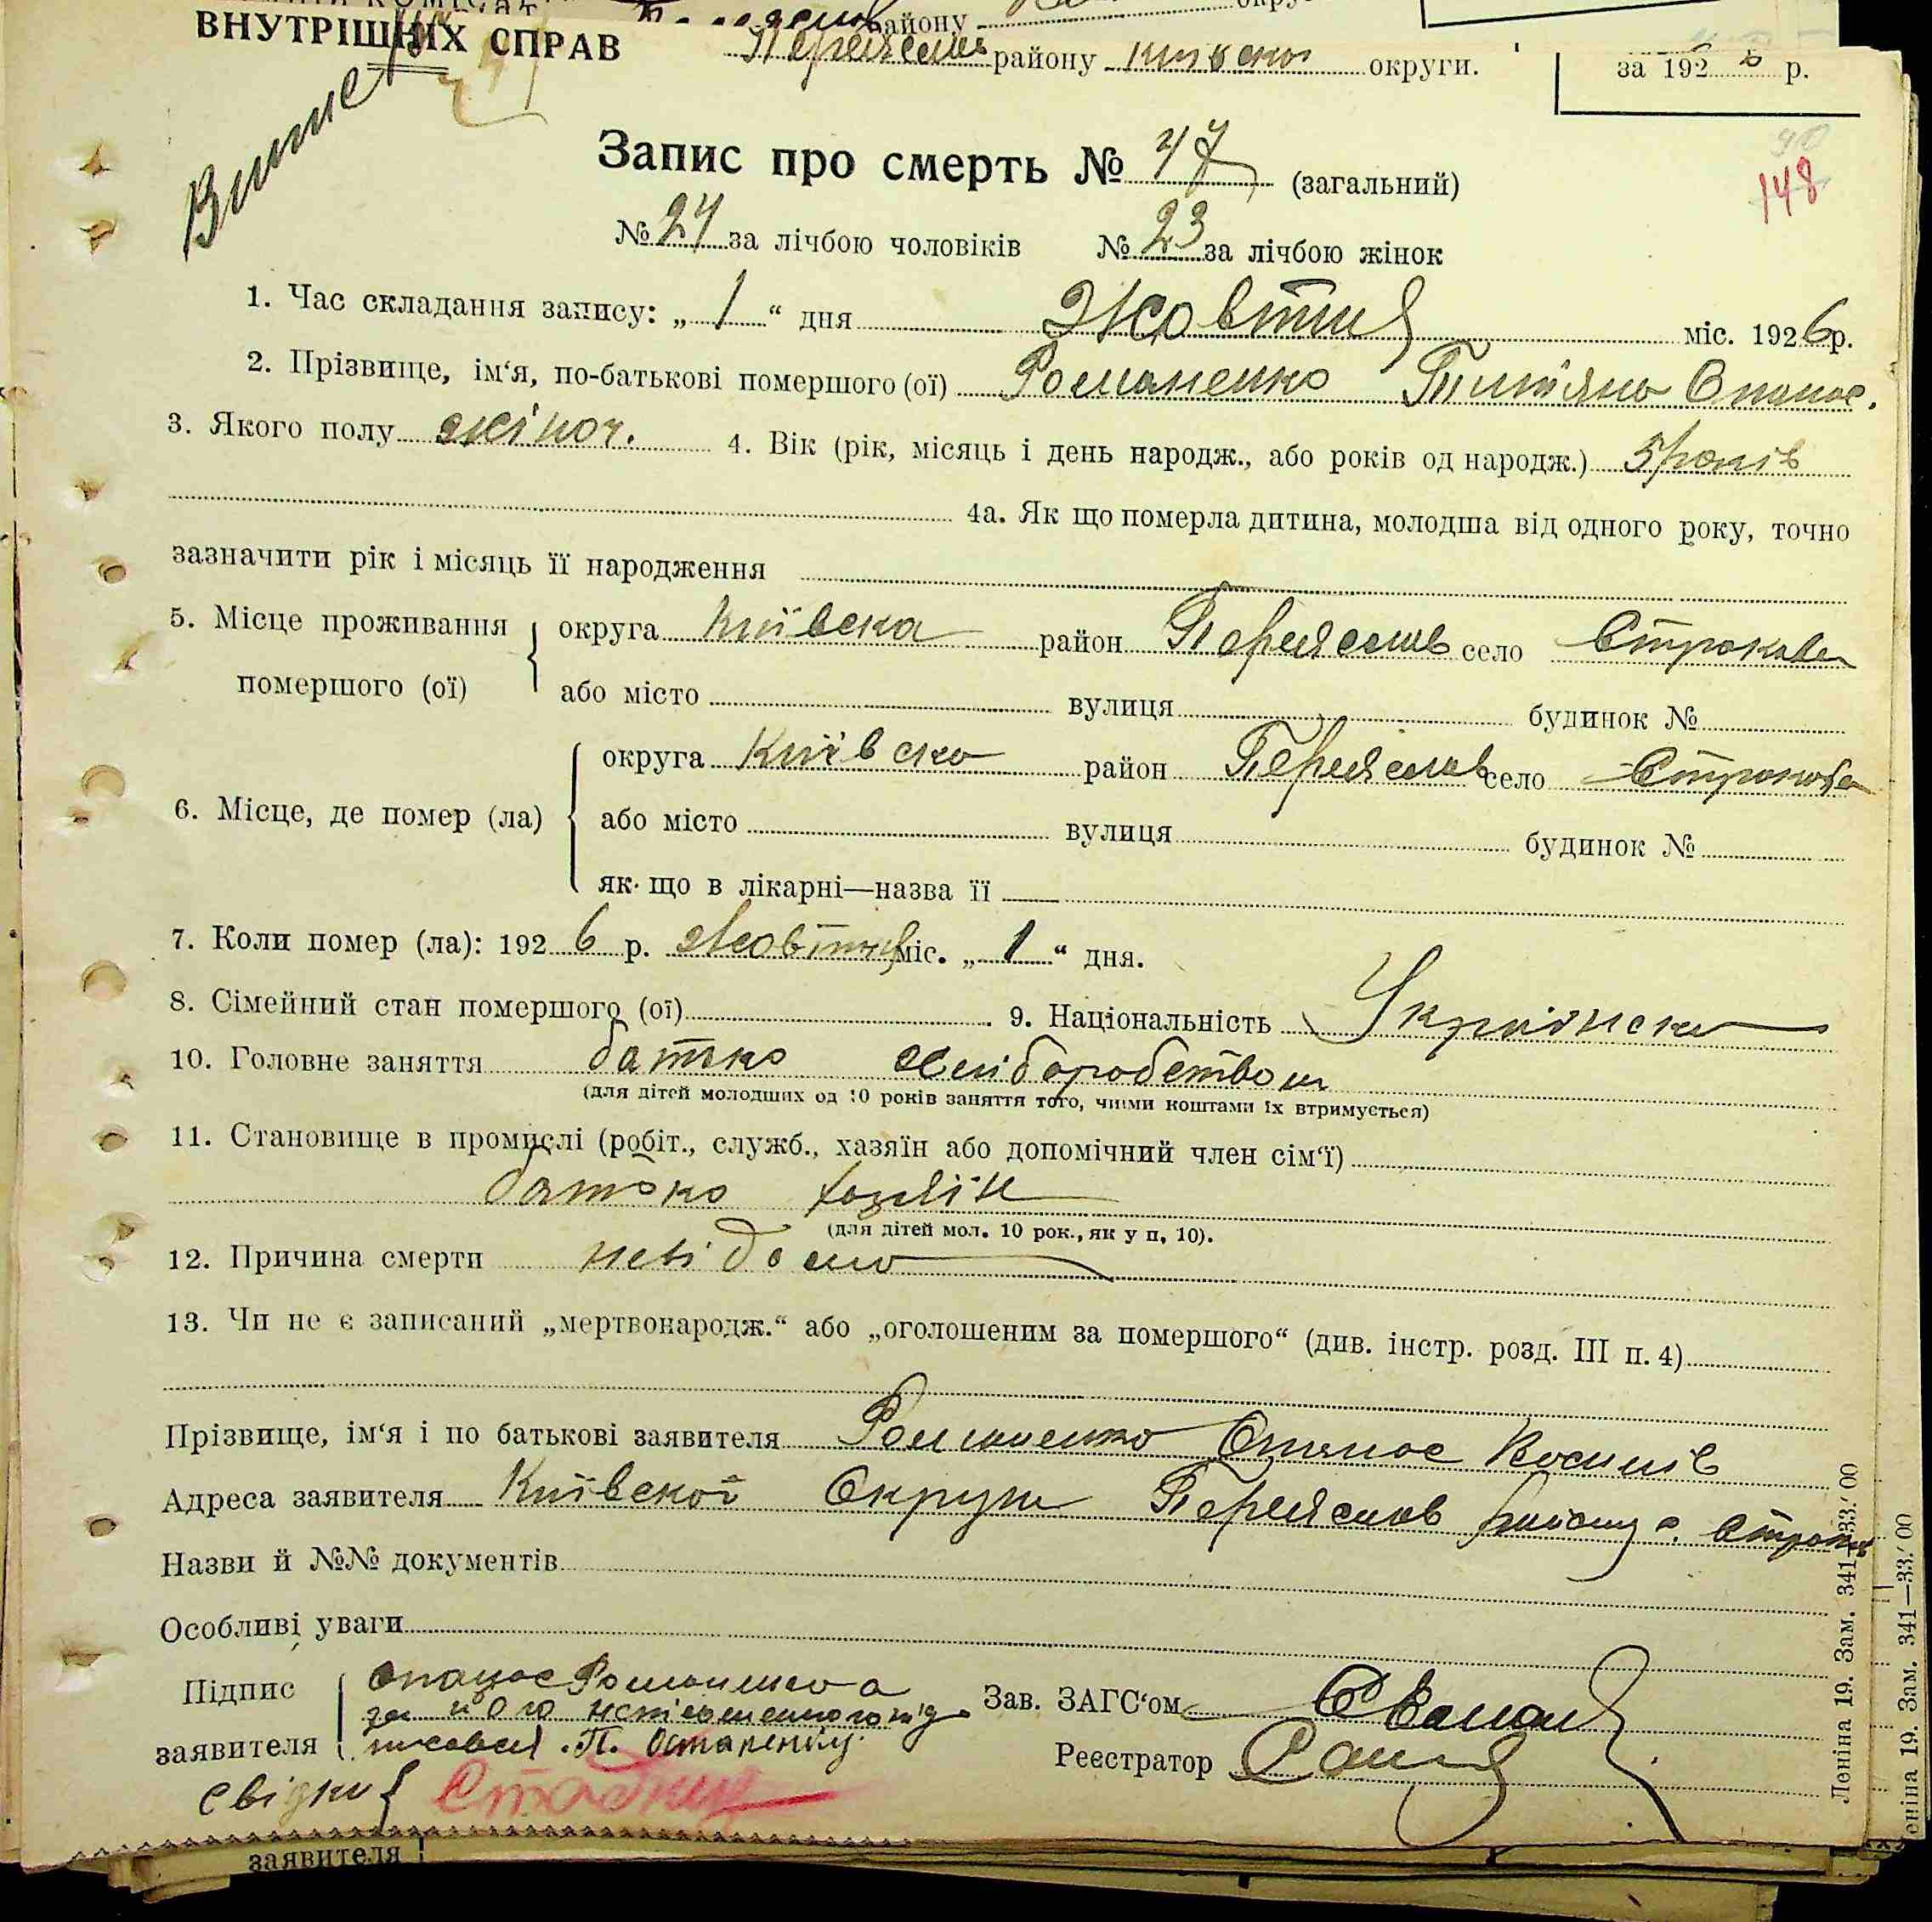 району
ВНУТРІШНІХ СПРАВ
району округи.
за 192 6 р.
Витяг
Запис про смерть № 47 (загальний)
148
№ 24 за лічбою чоловіків № 23 за лічбою жінок
1. Час складання запису: „ 1 “ дня Жовтня міс. 1926р.
2. Прізвище, ім‘я, по-батькові помершого (ої) Романенко Опанас.
3. Якого полу жіноч. 4. Вік (рік, місяць і день народж., або років од народж.) 5 років
4а. Як що померла дитина, молодша від одного року, точно
зазначити рік і місяць її народження
5. Місце проживання округа Київська район Переяслів село Строкова
помершого (ої) або місто вулиця будинок №
округа Київсько район Переяслов село Строкова
6. Місце, де помер (ла) або місто вулиця будинок №
як що в лікарні—назва її
7. Коли помер (ла): 192 6 р. Жовтня міс. „ 1 “ дня.
8. Сімейний стан помершого (ої) 9. Національність Українська
10. Головне заняття батько хліборобством
(для дітей молодших од 10 років заняття того, чиїми коштами їх втримується)
11. Становище в промислі (робіт., служб., хазяїн або допомічний член сім‘ї)
батько хазяін
(для дітей мол. 10 рок., як у п. 10).
12. Причина смерти невідомо
13. Чи не є записаний „мертвонародж.“ або „оголошеним за помершого“ (див. інстр. розд. III п. 4)
Прізвище, ім‘я і по батькові заявителя Романенко Опанас Василів
Адреса заявителя Київської Округи Переяслов району с. Строков
Назви й №№ документів
Особливі уваги
Підпис Опанас Романенко а
за його неписьменного під Зав. ЗАГС‘ом
заявителя писався П.
Реєстратор
свідки
Леніна 19. Зам. 341—33.′00
еніна 19. Зам. 341—33.′00
заявителя